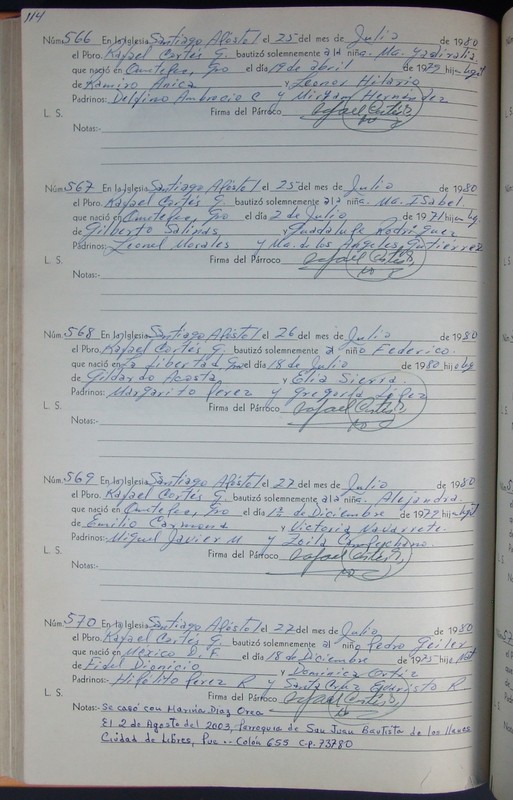 114
Núm. 566 En la Iglesia Santiago Apóstol el 25 del mes de Julio de 1980
el Pbro. Rafael Cortés G. bautizó solemnemente a la niña. Ma. Yadiralia
que nació en Ometepec, Gro el día 19 de abril de 1979 hija legit
de Ramiro Anica y Leonor Hilario
Padrinos: Delfino Ambrocio C y Miryam Hernández
L. S. Firma del Párroco Rafael Cortés G.
Notas:-
Núm. 567 En la Iglesia Santiago Apóstol el 25 del mes de Julio de 1980
el Pbro. Rafael Cortés G. bautizó solemnemente a la niña. Ma. Isabel.
que nació en Ometepec, Gro el día 2 de Julio de 1971 hija lg.
de Gilberto Salinas y Guadalupe Rodríguez
Padrinos: Leonel Morales y Ma. de los Angeles Gutiérrez
L. S. Firma del Párroco Rafael Cortés G.
Notas:-
Núm. 568 En la Iglesia Santiago Apóstol el 26 del mes de Julio de 1980
el Pbro. Rafael Cortés G. bautizó solemnemente al niño Federico.
que nació en La Libertad Gro el día 18 de Julio de 1980 hijo lg.
de Gildardo Acosta y Elia Sierra.
Padrinos: Margarito Pérez y Gregoria López
L. S. Firma del Párroco Rafael Cortés G.
Notas:-
Núm. 569 En la Iglesia Santiago Apóstol el 27 del mes de Julio de 1980
el Pbro. Rafael Cortés G. bautizó solemnemente a la niña. Alejandra.
que nació en Ometepec, Gro. el día 12 de Diciembre de 1979 hija legit
de Emilio Carmona y Victoria Navarrete.
Padrinos: Miguel Javier M y Zoila
L. S. Firma del Párroco Rafael Cortés G.
Notas:-
Núm. 570 En la Iglesia Santiago Apóstol el 27 del mes de Julio de 1980
el Pbro. Rafael Cortés G. bautizó solemnemente al niño Pedro Geiler
que nació en México D. F. el día 18 de Diciembre de 1975 hijo
de Fidel Dionicio y Dominica Cortéz
Padrinos: Hipólito Pérez R y Santa Cruz Evaristo R.
L. S. Firma del Párroco Rafael Cortés G.
Notas:- Se casó con Marina Diaz Orea
El 2 de Agosto del 2003, Parroquia de San Juan Bautista de los Llanos
Ciudad de Libres, Pue -- Colón 655 c.p. 73780